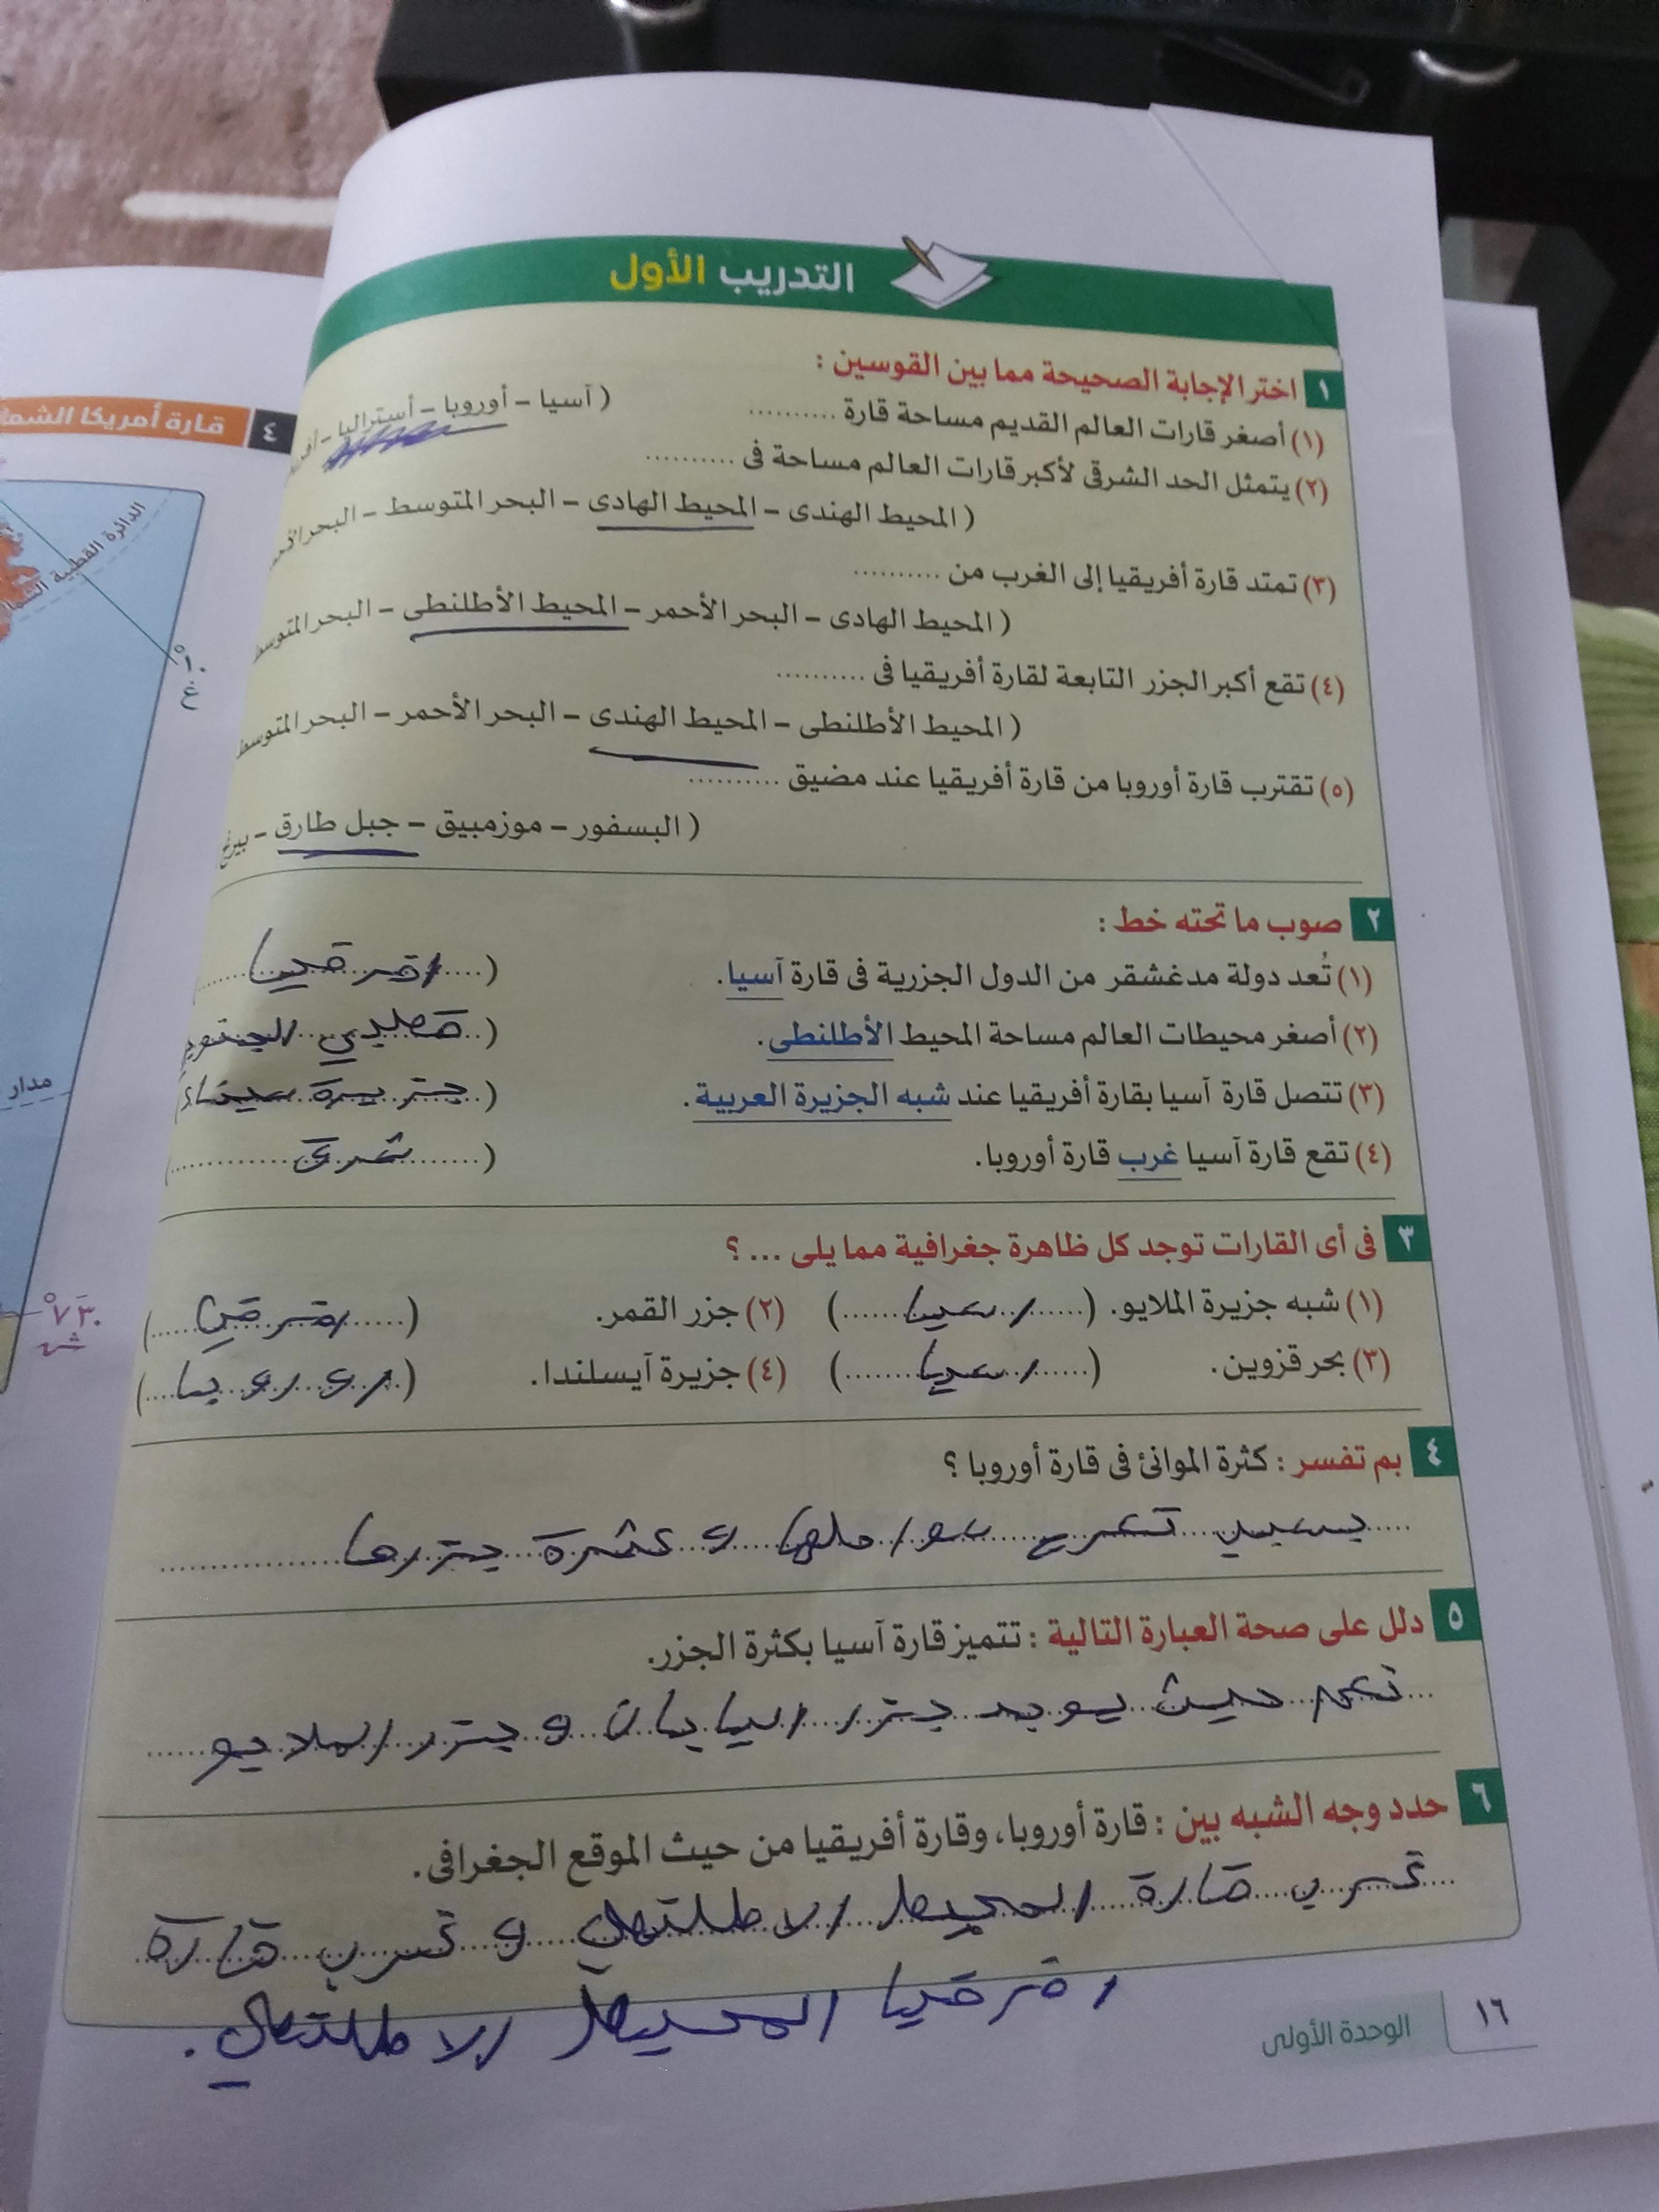 التدريب الأول
١ اختر الإجابة الصحيحة مما بين القوسين :
(١) أصغر قارات العالم القديم مساحة قارة ..........
( آسيا – أوروبا – أستراليا –
(٢) يتمثل الحد الشرقى لأكبر قارات العالم مساحة فى ..........
( المحيط الهندى – المحيط الهادى – البحر المتوسط –
(٣) تمتد قارة أفريقيا إلى الغرب من ..........
( المحيط الهادى – البحر الأحمر – المحيط الأطلنطى – البحر المتوسط
(٤) تقع أكبر الجزر التابعة لقارة أفريقيا فى ..........
( المحيط الأطلنطى – المحيط الهندى – البحر الأحمر – البحر المتوسط
(٥) تقترب قارة أوروبا من قارة أفريقيا عند مضيق ..........
( البسفور – موزمبيق – جبل طارق –
٢ صوب ما تحته خط :
(١) تُعد دولة مدغشقر من الدول الجزرية فى قارة آسيا. ( افرقيا
(٢) أصغر محيطات العالم مساحة المحيط الأطلنطى. (
(٣) تتصل قارة آسيا بقارة أفريقيا عند شبه الجزيرة العربية. ( جزيرة سيناء
(٤) تقع قارة آسيا غرب قارة أوروبا. ( شرق
٣ فى أى القارات توجد كل ظاهرة جغرافية مما يلى ... ؟
(١) شبه جزيرة الملايو. ( اسيا ) (٢) جزر القمر. ( )
(٣) بحر قزوين. ( اسيا ) (٤) جزيرة آيسلندا. ( اوروبا )
٤ بم تفسر : كثرة الموانئ فى قارة أوروبا ؟
بسبب تعرج سواحلها و كثرة جزرها
٥ دلل على صحة العبارة التالية : تتميز قارة آسيا بكثرة الجزر.
نعم حيث يوجد جزر اليابان و جزر الملايو
٦ حدد وجه الشبه بين : قارة أوروبا، وقارة أفريقيا من حيث الموقع الجغرافى.
غرب قارة المحيط الاطلنطي و غرب قارة
افرقيا المحيط الاطلنطي.
١٦ الوحدة الأولى
٤ قارة أمريكا الشما
الدائرة القطبية الشما
١٠°
غ
مدار
٧٣°